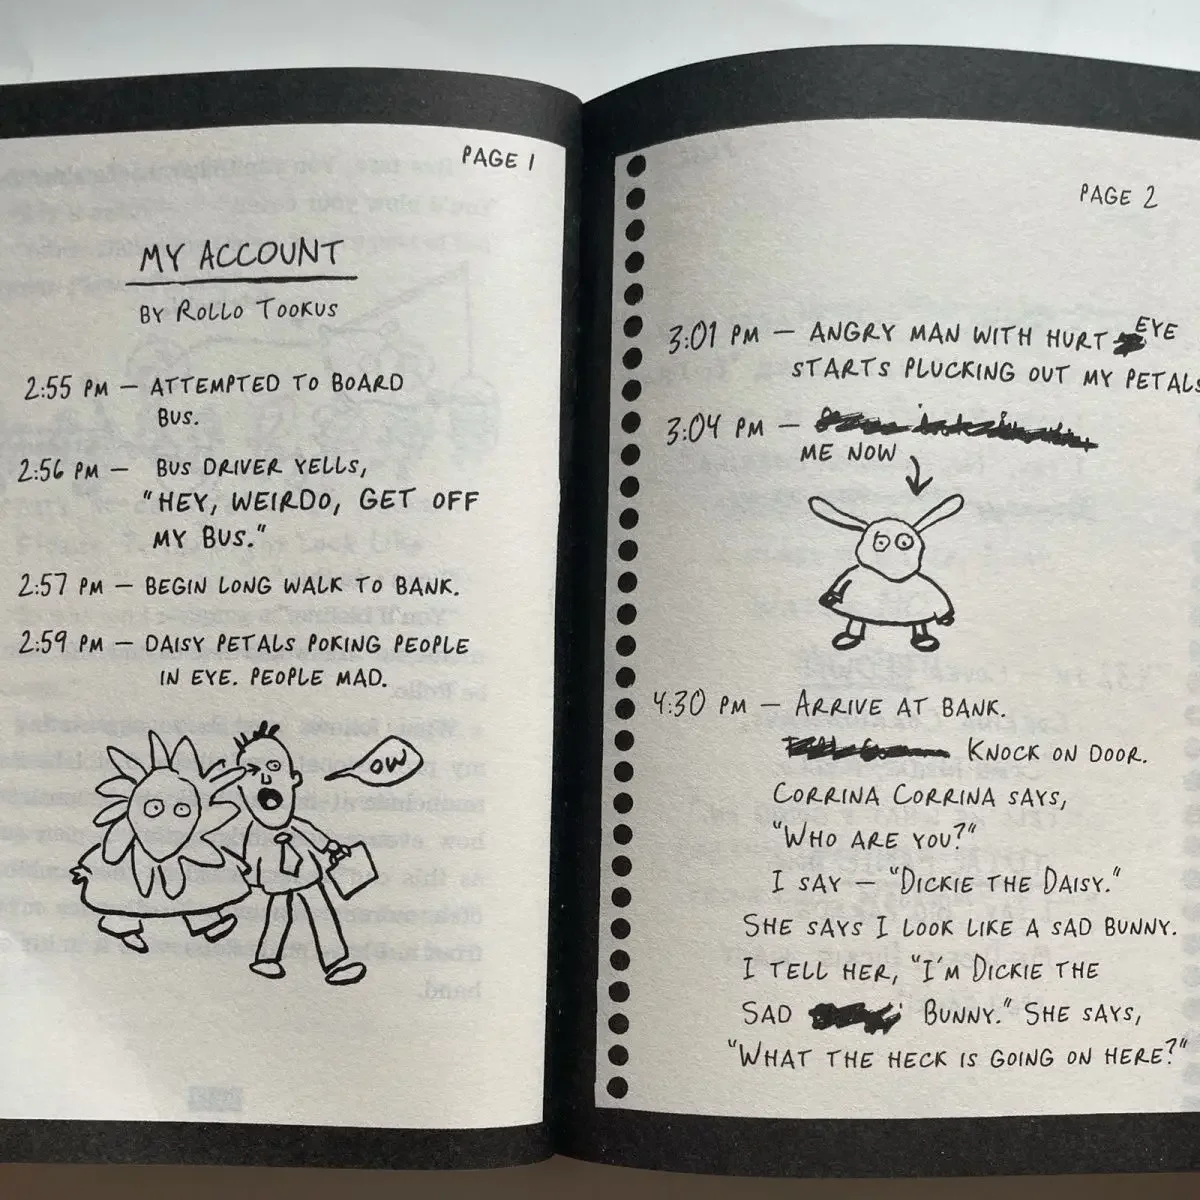 PAGE 1
MY ACCOUNT
BY ROLLO TOOKUS
2:55 PM — ATTEMPTED TO BOARD
BUS.
2:56 PM — BUS DRIVER YELLS,
"HEY, WEIRDO, GET OFF
MY BUS."
2:57 PM — BEGIN LONG WALK TO BANK.
2:59 PM — DAISY PETALS POKING PEOPLE
IN EYE. PEOPLE MAD.
OW
PAGE 2
3:01 PM — ANGRY MAN WITH HURT EYE
STARTS PLUCKING OUT MY PETALS
3:04 PM —
ME NOW
4:30 PM — ARRIVE AT BANK.
KNOCK ON DOOR.
CORRINA CORRINA SAYS,
"WHO ARE YOU?"
I SAY — "DICKIE THE DAISY."
SHE SAYS I LOOK LIKE A SAD BUNNY.
I TELL HER, "I'M DICKIE THE
SAD BUNNY." SHE SAYS,
"WHAT THE HECK IS GOING ON HERE?"